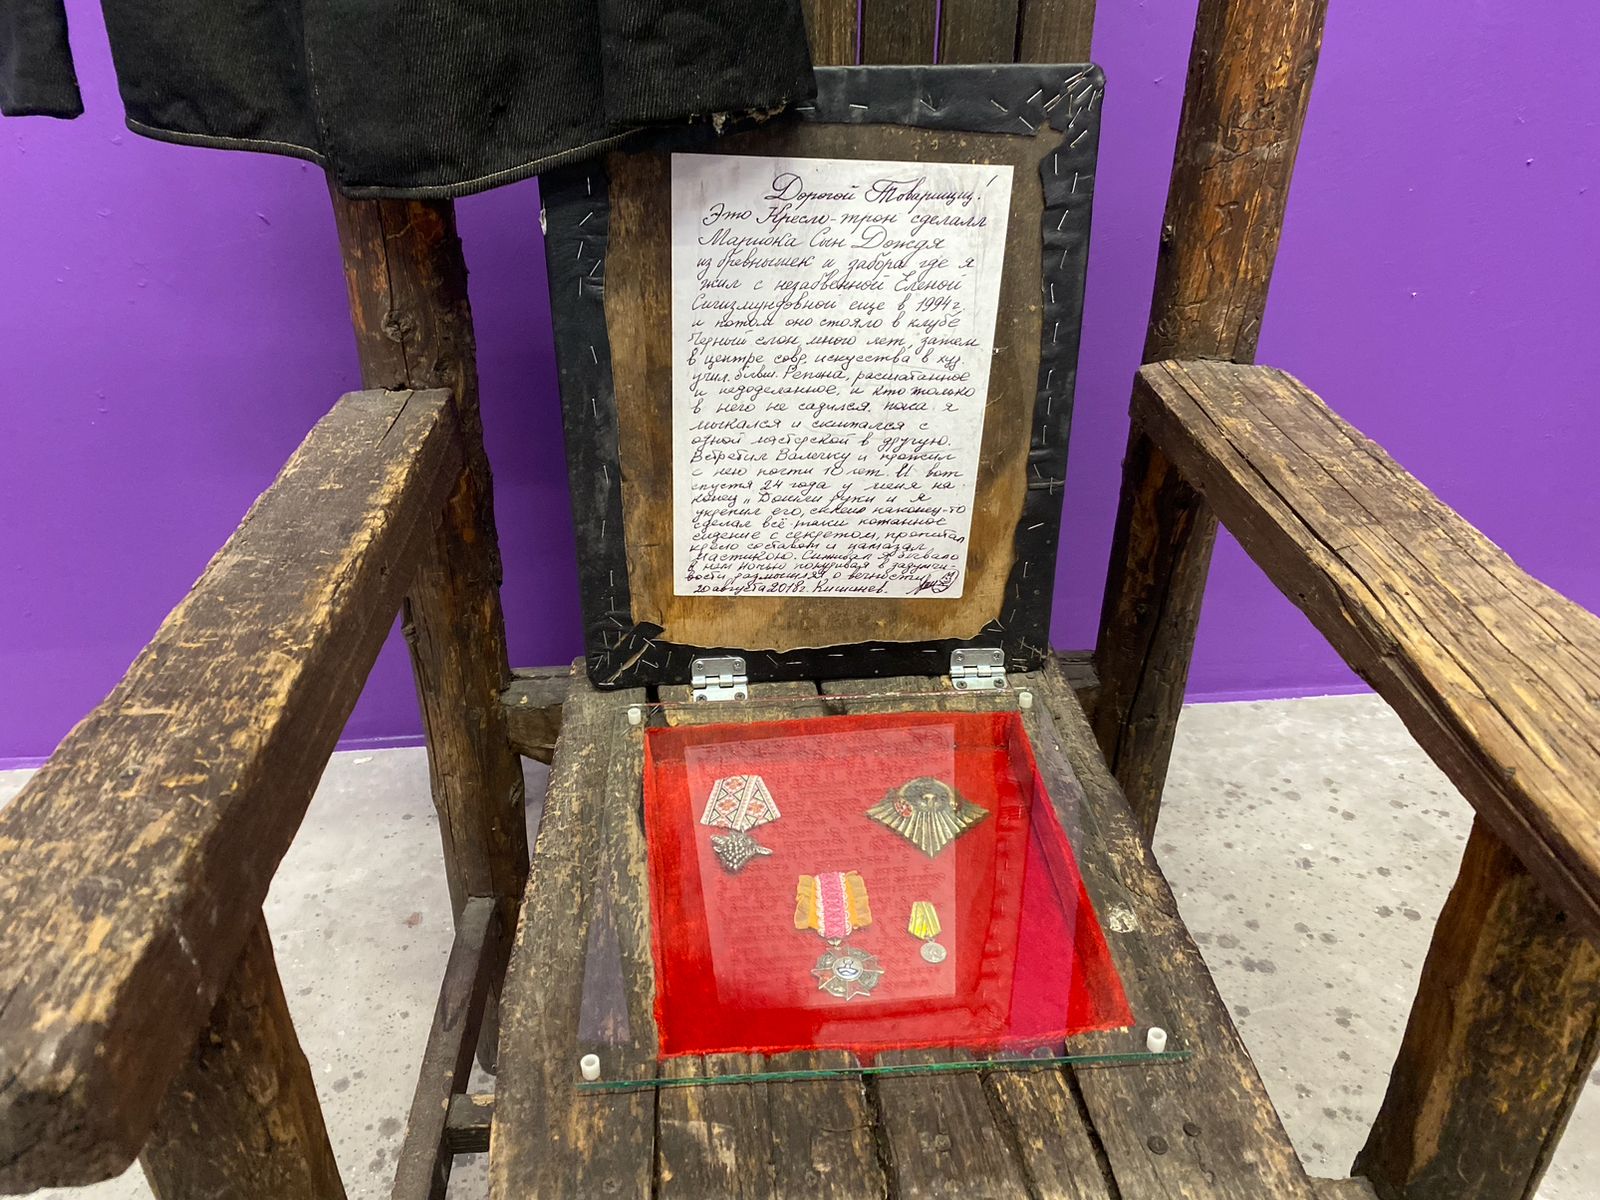 Дорогой Товарищ!
Это Кресло-трон сделалл
Мариока Сын Дождя
из бревнышек и забора где я
жил с незабвенной Еленой
Сигизмундовной еще в 1994г.
и потом оно стояло в клубе
Черный слон много лет, затем
в центре совр. искусства в худ.
учил. бывш. Репина, расшатанное
и недоделанное, и кто только
в него не садился, пока я
мыкался и скитался с
одной мастерской в другую.
Встретил Валечку и прожил
с нею почти 10 лет. И вот
спустя 24 года у меня на
конец „Дошли руки и я
укрепил его, наконец-то
сделал всё-таки кожанное
сидение с секретом, пропитал
кресло составом и намазал
мастикою. Сиживал я бывало
в нем ночью покуривая в задумчи-
вости размышляя о вечности
20 августа 2018г. Кишинев.